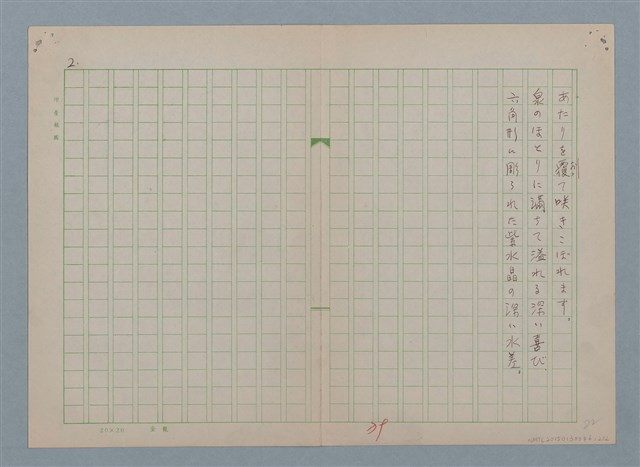 2.
あたりを覆て咲きこぼれます。
泉のほとりに満ちて溢れる深い喜び
六角形に彫られた紫水晶の深い水差。
39